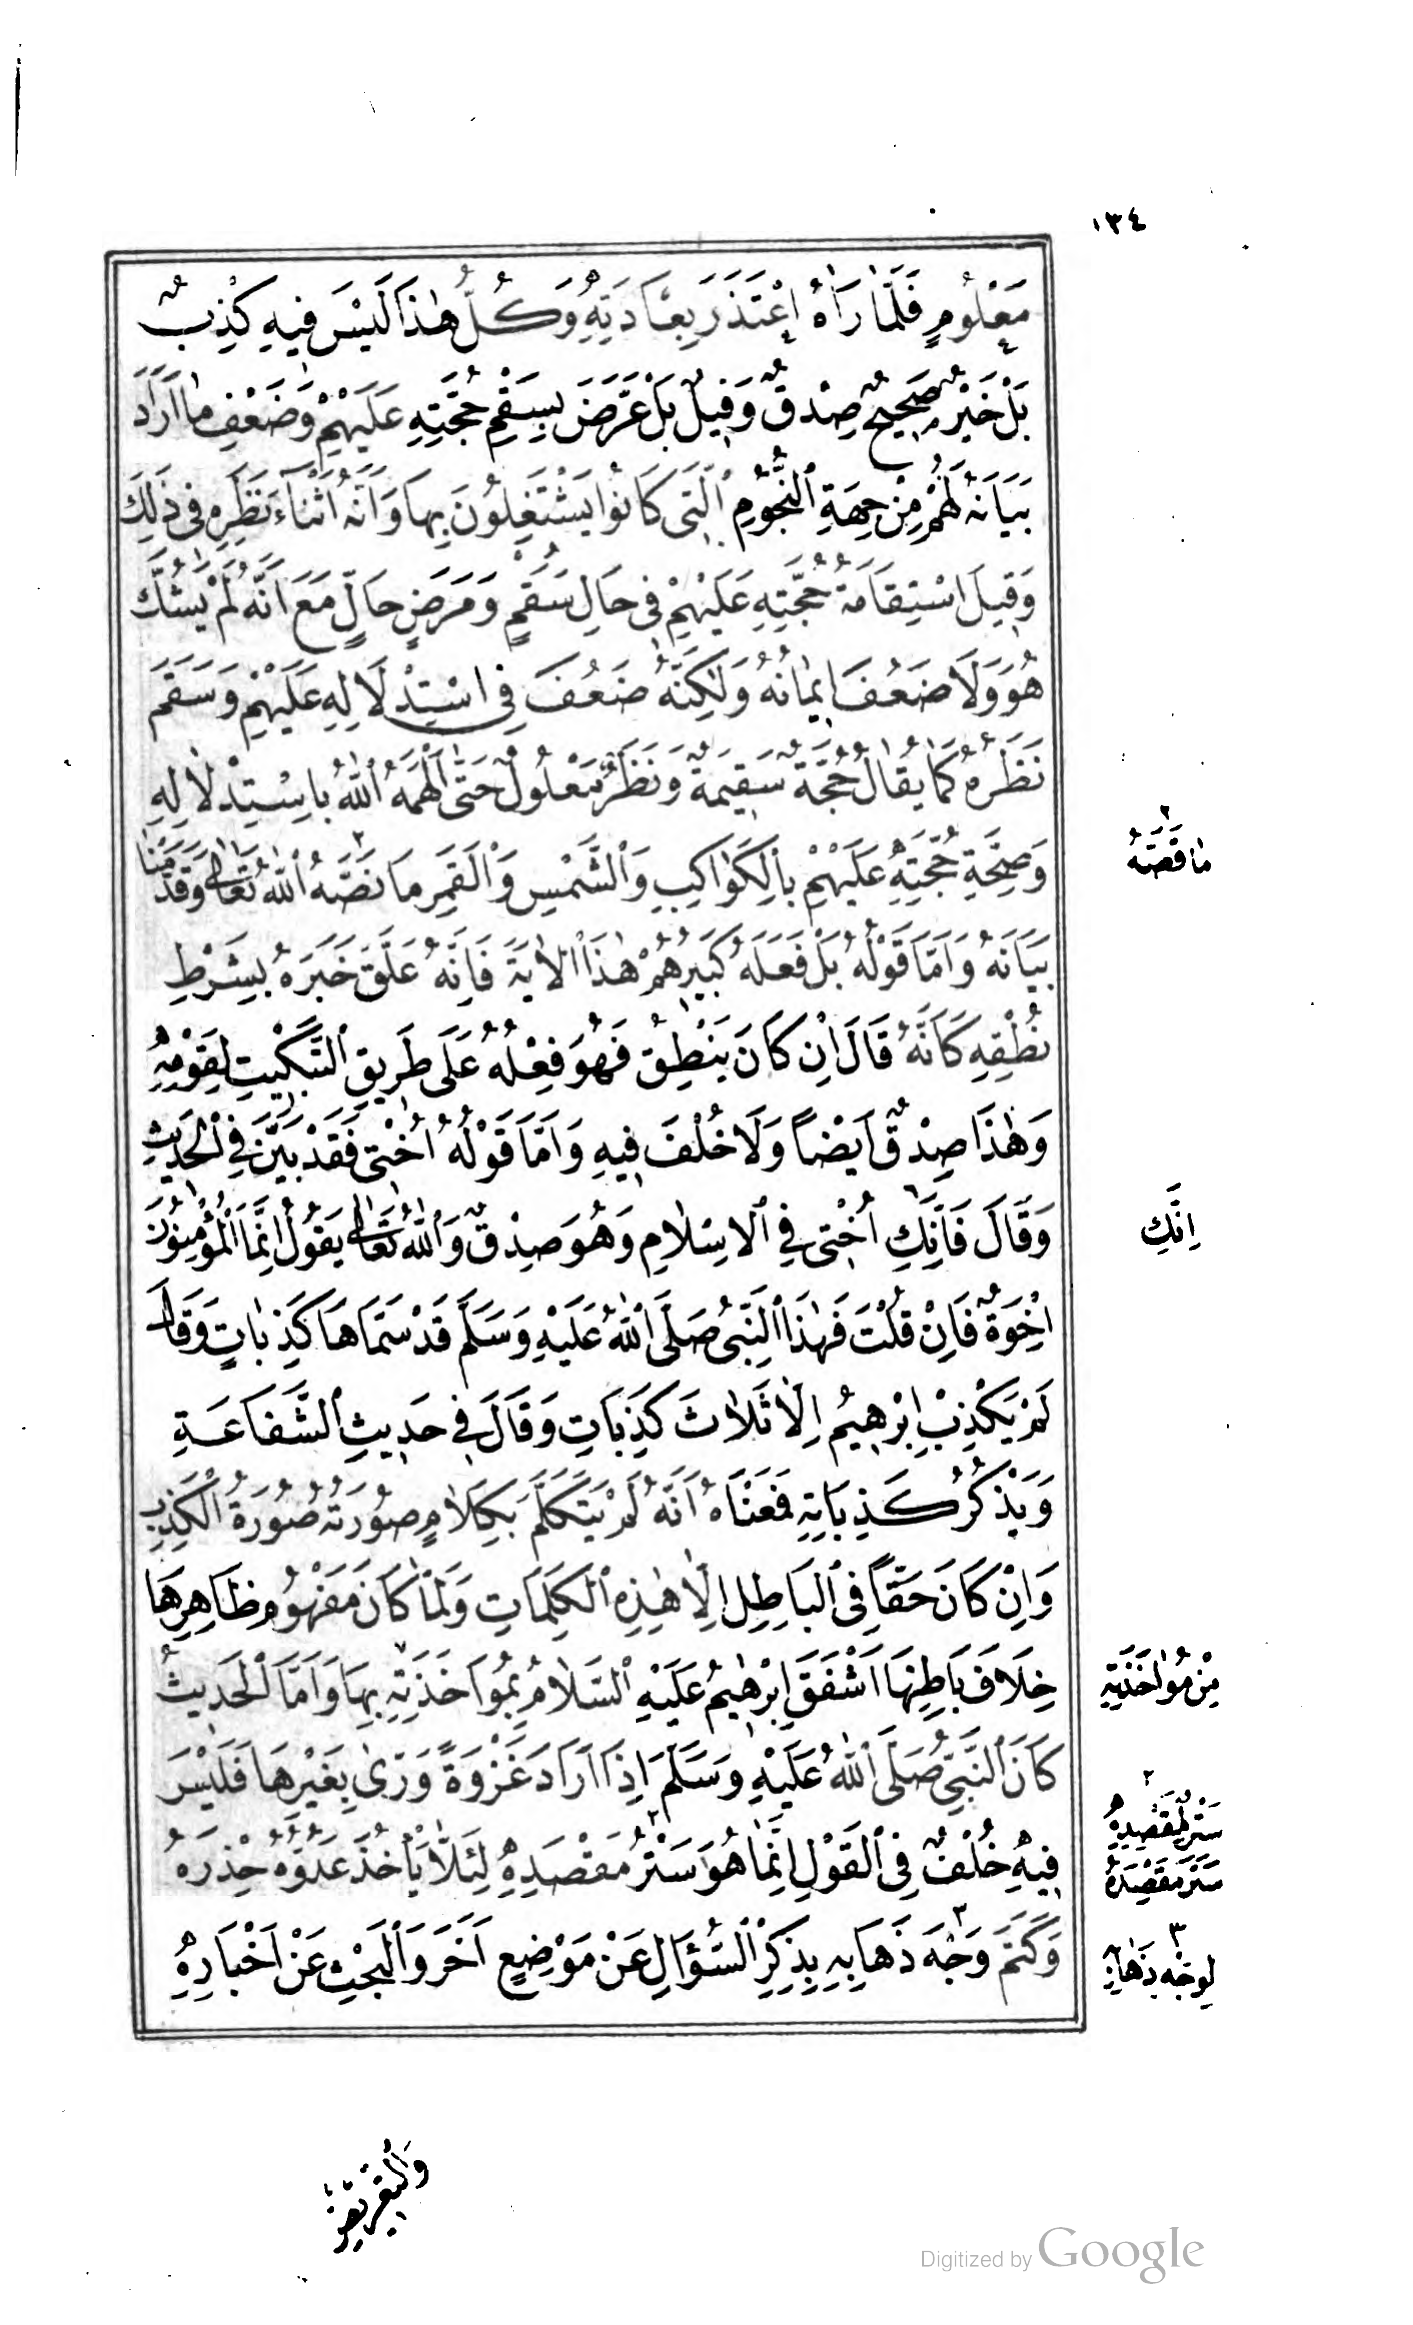 ١٣٤
مَعْلُومٍ فَلَمَّا رَاٰهُ اِعْتَذَرَ بِعَادَتِهِ وَكُلُّ هٰذَا لَيْسَ فِيهِ كَذِبٌ
بَلْ خَبَرٌ صَحِيحٌ صِدْقٌ وَقِيلَ بَلْ عَرَّضَ بِسَقَمِ حُجَّتِهِ عَلَيْهِمْ وَضَعْفِ مَا اَرَادَ
بَيَانَهُ لَهُمْ مِنْ جِهَةِ ٱلنُّجُومِ ٱلَّتِى كَانُوا يَشْتَغِلُونَ بِهَا وَاَنَّهُ اَثْنَاءَ نَظَرِهِ فِى ذٰلِكَ
وَقَبْلَ اسْتِقَامَةِ حُجَّتِهِ عَلَيْهِمْ فِى حَالِ سَقَمٍ وَمَرَضِ حَالٍ مَعَ اَنَّهُ لَمْ يَشُكَّ
هُوَ وَلَا ضَعُفَ اِيمَانُهُ وَلٰكِنَّهُ ضَعُفَ فِى اسْتِدْلَالِهِ عَلَيْهِمْ وَسَقَمَ
نَظَرُهُ كَمَا يُقَالُ حُجَّةٌ سَقِيمَةٌ وَنَظَرٌ مَعْلُولٌ حَتّٰى اَلْهَمَهُ ٱللّٰهُ بِاسْتِدْلَالِهِ
وَصِحَّةِ حُجَّتِهِ عَلَيْهِمْ بِالْكَوَاكِبِ وَٱلشَّمْسِ وَٱلْقَمَرِ مَا نَصَّهُ ٱللّٰهُ تَعَالٰى وَقَدَّمْنَا
بَيَانَهُ وَاَمَّا قَوْلُهُ بَلْ فَعَلَهُ كَبِيرُهُمْ هٰذَا ٱلْاٰيَةَ فَاِنَّهُ عَلَّقَ خَبَرَهُ بِشَرْطِ
نُطْقِهِ كَاَنَّهُ قَالَ اِنْ كَانَ يَنْطِقُ فَهُوَ فِعْلُهُ عَلَى طَرِيقِ ٱلتَّبْكِيتِ لِقَوْمِهِ
وَهٰذَا صِدْقٌ اَيْضاً وَلَا خُلْفَ فِيهِ وَاَمَّا قَوْلُهُ اُخْتِى فَقَدْ بَيَّنَ فِى ٱلْحَدِيثِ
وَقَالَ فَاِنَّكِ اُخْتِى فِى ٱلْاِسْلَامِ وَهُوَ صِدْقٌ وَٱللّٰهُ تَعَالٰى يَقُولُ اِنَّمَا ٱلْمُؤْمِنُونَ
اِخْوَةٌ فَاِنْ قُلْتَ فَهٰذَا ٱلنَّبِىُّ صَلَّى ٱللّٰهُ عَلَيْهِ وَسَلَّمَ قَدْ سَمَّاهَا كَذِبَاتٍ وَقَالَ
لَمْ يَكْذِبْ اِبْرٰهِيمُ اِلَّا ثَلَاثَ كَذِبَاتٍ وَقَالَ فِى حَدِيثِ ٱلشَّفَاعَةِ
وَيَذْكُرُ كَذِبَاتِهِ فَمَعْنَاهُ اَنَّهُ لَمْ يَتَكَلَّمْ بِكَلَامٍ صُورَتُهُ صُورَةُ ٱلْكَذِبِ
وَاِنْ كَانَ حَقّاً فِى ٱلْبَاطِلِ اِلَّا هٰذِهِ ٱلْكَلِمَاتِ وَلَمَّا كَانَ مَفْهُومُ ظَاهِرِهَا
خِلَافَ بَاطِنِهَا اَشْفَقَ اِبْرٰهِيمُ عَلَيْهِ ٱلسَّلَامُ بِمُوَاخَذَتِهِ بِهَا وَاَمَّا ٱلْحَدِيثُ
كَانَ ٱلنَّبِىُّ صَلَّى ٱللّٰهُ عَلَيْهِ وَسَلَّمَ اِذَا اَرَادَ غَزْوَةً وَرّٰى بِغَيْرِهَا فَلَيْسَ
فِيهِ خُلْفٌ فِى ٱلْقَوْلِ اِنَّمَا هُوَ سَتْرُ مَقْصَدِهِ لِئَلَّا يَأْخُذَ عَدُوُّهُ حِذْرَهُ
وَكَتَمَ وَجْهَ ذَهَابِهِ بِذِكْرِ ٱلسُّؤَالِ عَنْ مَوْضِعٍ اٰخَرَ وَٱلْبَحْثِ عَنْ اَخْبَارِهِ
٢
مَا قَصَّهُ
اِنَّكِ
مِنْ مُوٰاخَذَتِهِ
٢
سَتْرٌ لِمَقْصِدِهِ
سَتَرَ مَقْصِدَهُ
٣
لِوَجْهِ ذَهَابِهِ
وَالتَّعْرِيضِ
Digitized by Google